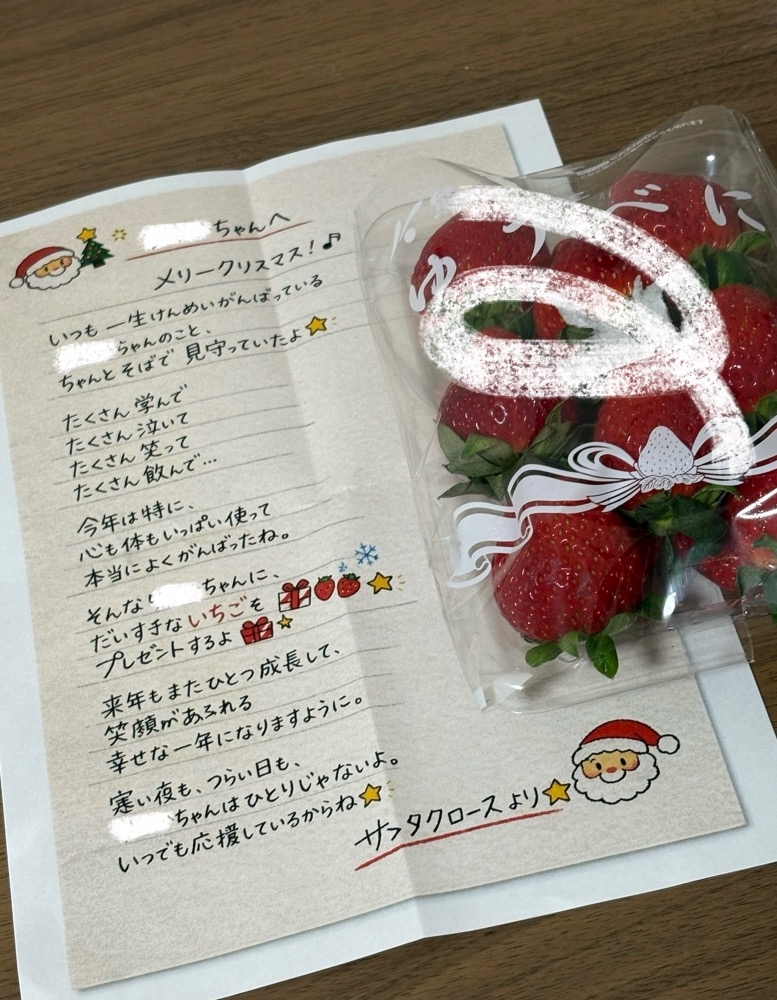 ちゃんへ
メリークリスマス！♪
いつも 一生けんめいがんばっている
ちゃんのこと、
ちゃんとそばで 見守っていたよ
たくさん 学んで
たくさん 泣いて
たくさん 笑って
たくさん 飲んで…
今年は特に、
心も体もいっぱい使って
本当によくがんばったね。
そんな ちゃんに、
だいすきな いちごを
プレゼントするよ
来年もまたひとつ成長して、
笑顔があふれる
幸せな一年になりますように。
寒い夜も、つらい日も、
ちゃんはひとりじゃないよ。
いつでも応援しているからね
サンタクロースより
ゆうべに